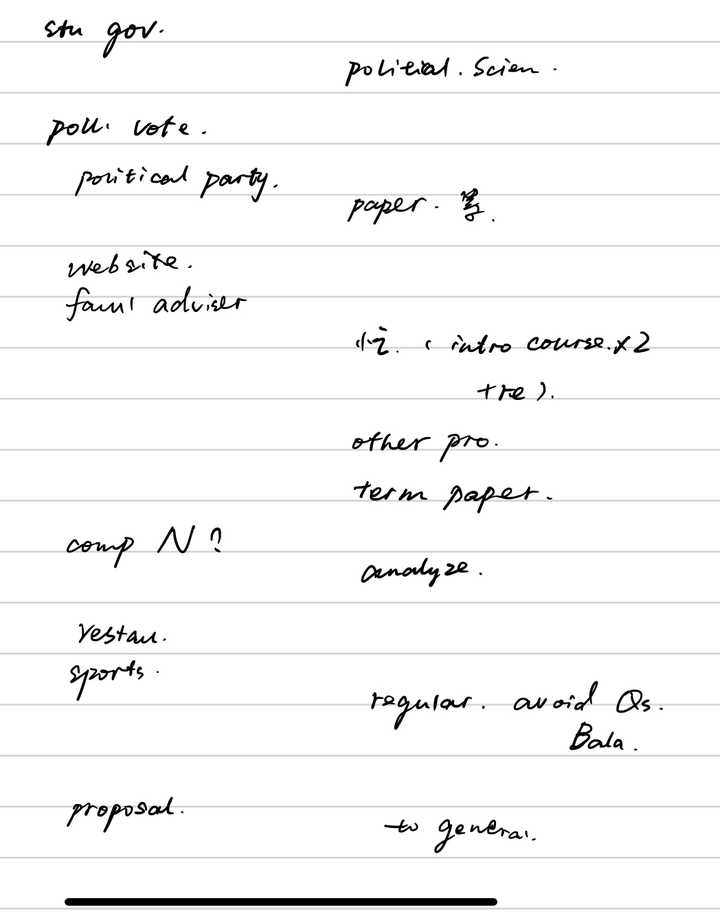 stu gov.
political. Scien.
poll. vote.
political party.
paper.
website.
adviser
忙. ( intro course. x2
+re ).
other pro.
term paper.
comp N?
analyze.
restau.
sports.
regular. avoid Qs.
Bala.
proposal.
to general.